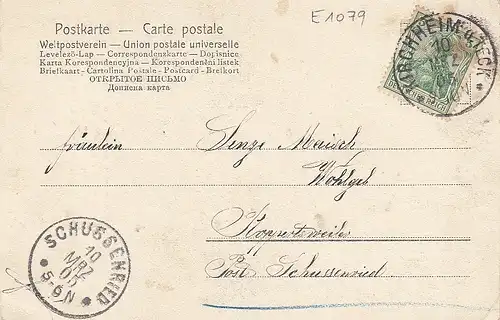 E1079
Postkarte — Carte postale
Weltpostverein — Union postale universelle
Levelező-Lap — Correspondenzkarte — Dopisnice
Karta Korespondencyjna — Korespondenční lístek
Briefkaart - Cartolina Postale - Postcard - Brefkort
ОТКРЫТОЕ ПИСЬМО
Дописна карта
KIRCHHEIM u. TECK
10
Fräulein Senze Maisch
Wohlgeb
Roppertsweiler
Post Schussenried
SCHUSSENRIED
10
MRZ
05
5-6N